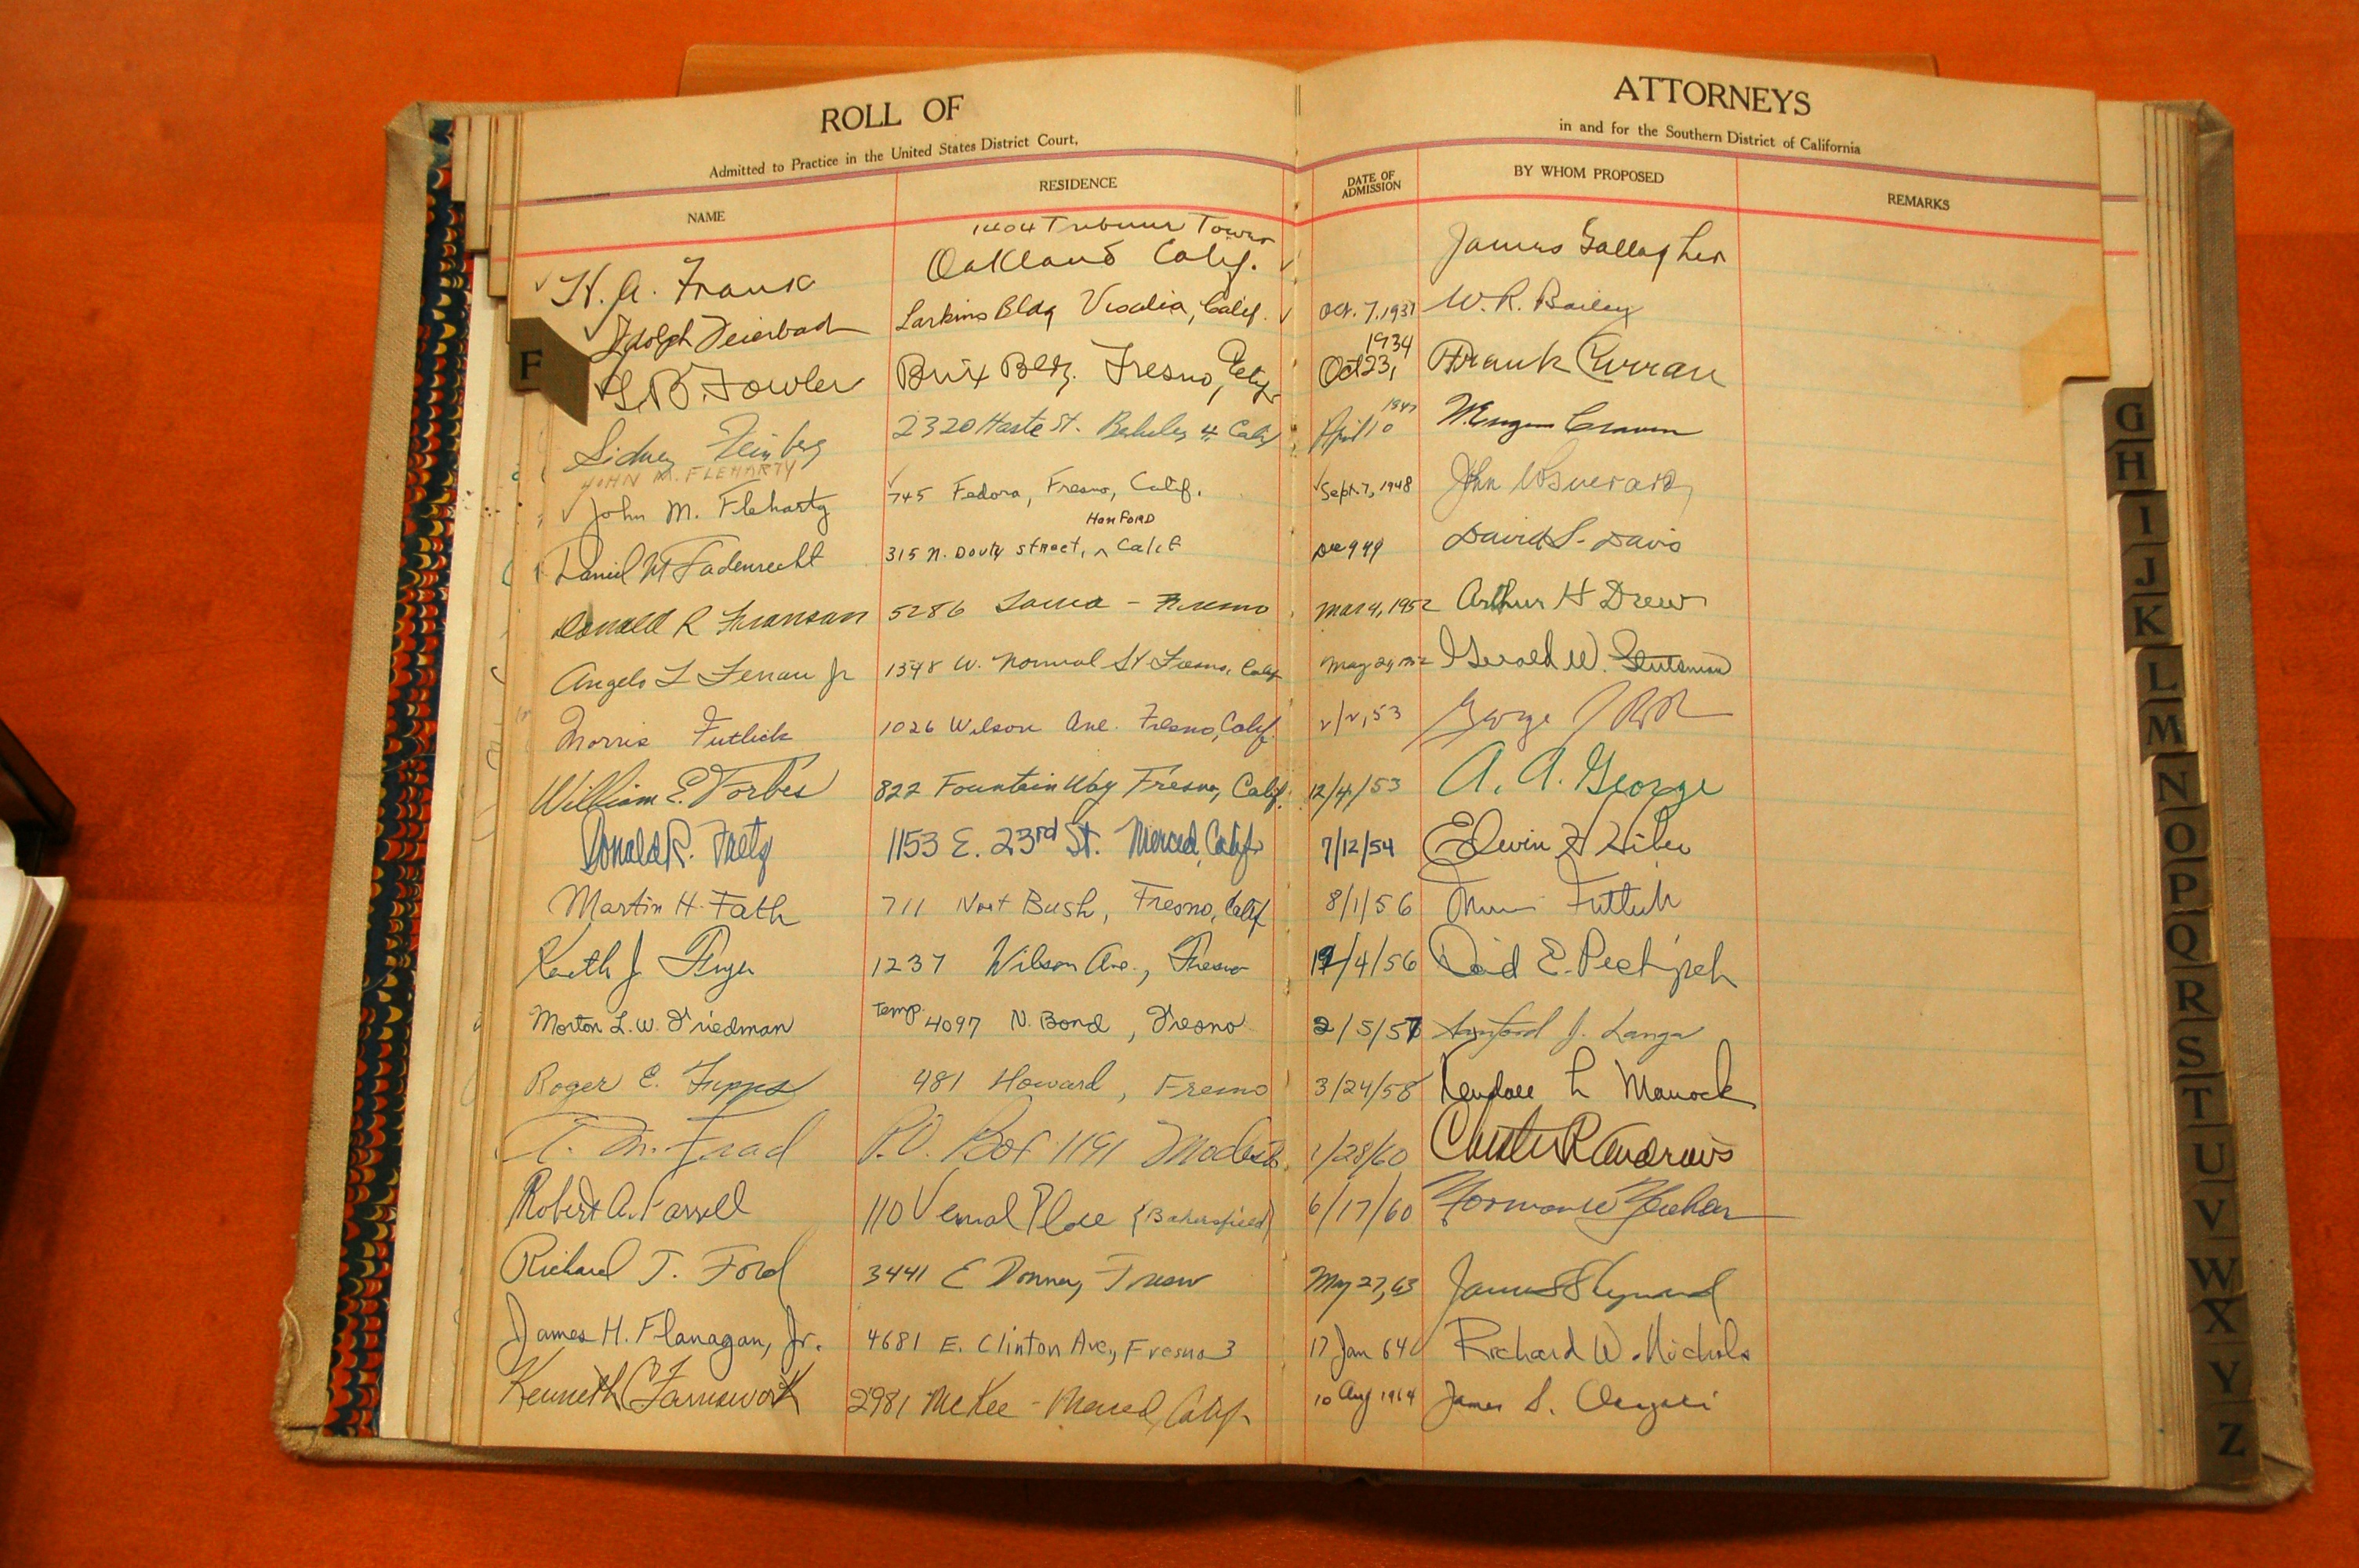 ROLL OF ATTORNEYS
Admitted to Practice in the United States District Court, in and for the Southern District of California
NAME RESIDENCE DATE OF ADMISSION BY WHOM PROPOSED REMARKS
1404 Tribune Tower
H. A. Frank Oakland Calif. James Gallagher
Adolph Feierbach Larkins Bldg Visalia, Calif. Oct. 7, 1931 W. R. Bailey
1934
F
Fowler Brix Bldg. Fresno, Oct 23, Frank Curran
Sidney Feinberg 2320 Haste St. Berkeley 4 Calif April 10 1947
JOHN M. FLEHARTY
John M. Fleharty 745 Fedora, Fresno, Calif. Sept. 7, 1948 John
HanFORD
Daniel M Fadenrecht 315 N. Douty street, ^ Calif David S. Davis
Donald R Franson 5286 - Fresno Mar 4, 1952 Arthur H Drew
Angelo L Jr 1348 W. Normal St Fresno, Calif May Gerald W.
Morris Futlick 1026 Wilson Ave. Fresno, Calif. George
William E. Forbes 822 Fountain Way Fresno, Calif. 12/4/53 A. A. George
Donald R. Fretz 1153 E. 23rd St. Merced, Calif 7/12/54 Edwin
Martin H. Fath 711 Bush, Fresno, Calif 8/1/56 Futlick
Keith J 1237 Wilson Ave., Fresno /4/56 David E.
Morton L. W. Friedman Temp. 4097 N. Bond, Fresno 2/5/57 J.
Roger E. Fipps 481 Howard, Fresno 3/24/58 Kendall L Manock
P.O. Box 1191 Modesto 1/28/60 Chester R Andrews
Robert A. Farrell 110 Vernal Place (Bakersfield) 6/17/60
Richard T. Ford 3441 E Donner, Fresno May 27, 63 James
James H. Flanagan, Jr. 4681 E. Clinton Ave., Fresno 3 17 Jan 64 Richard W. Nichols
Kenneth Farnsworth 2981 McKee - Merced, Calif. 10 Aug 1964 James S.
G
H
I
J
K
L
M
N
O
P
Q
R
S
T
U
V
W
X
Y
Z